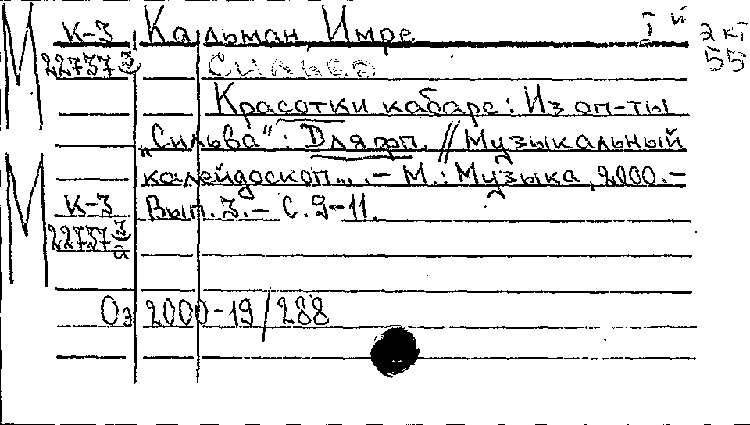 М К-3 Кальман, Имре I й
22737 3 Сильва 2 кт
55
Красотки кабаре: Из оп-ты
„Сильва“: Для фп. // Музыкальный
калейдоскоп... .– М.: Музыка, 2000.–
М К-3 Вып. 3.– С. 9-11.
22737 3
й
Оз 2000-19/288